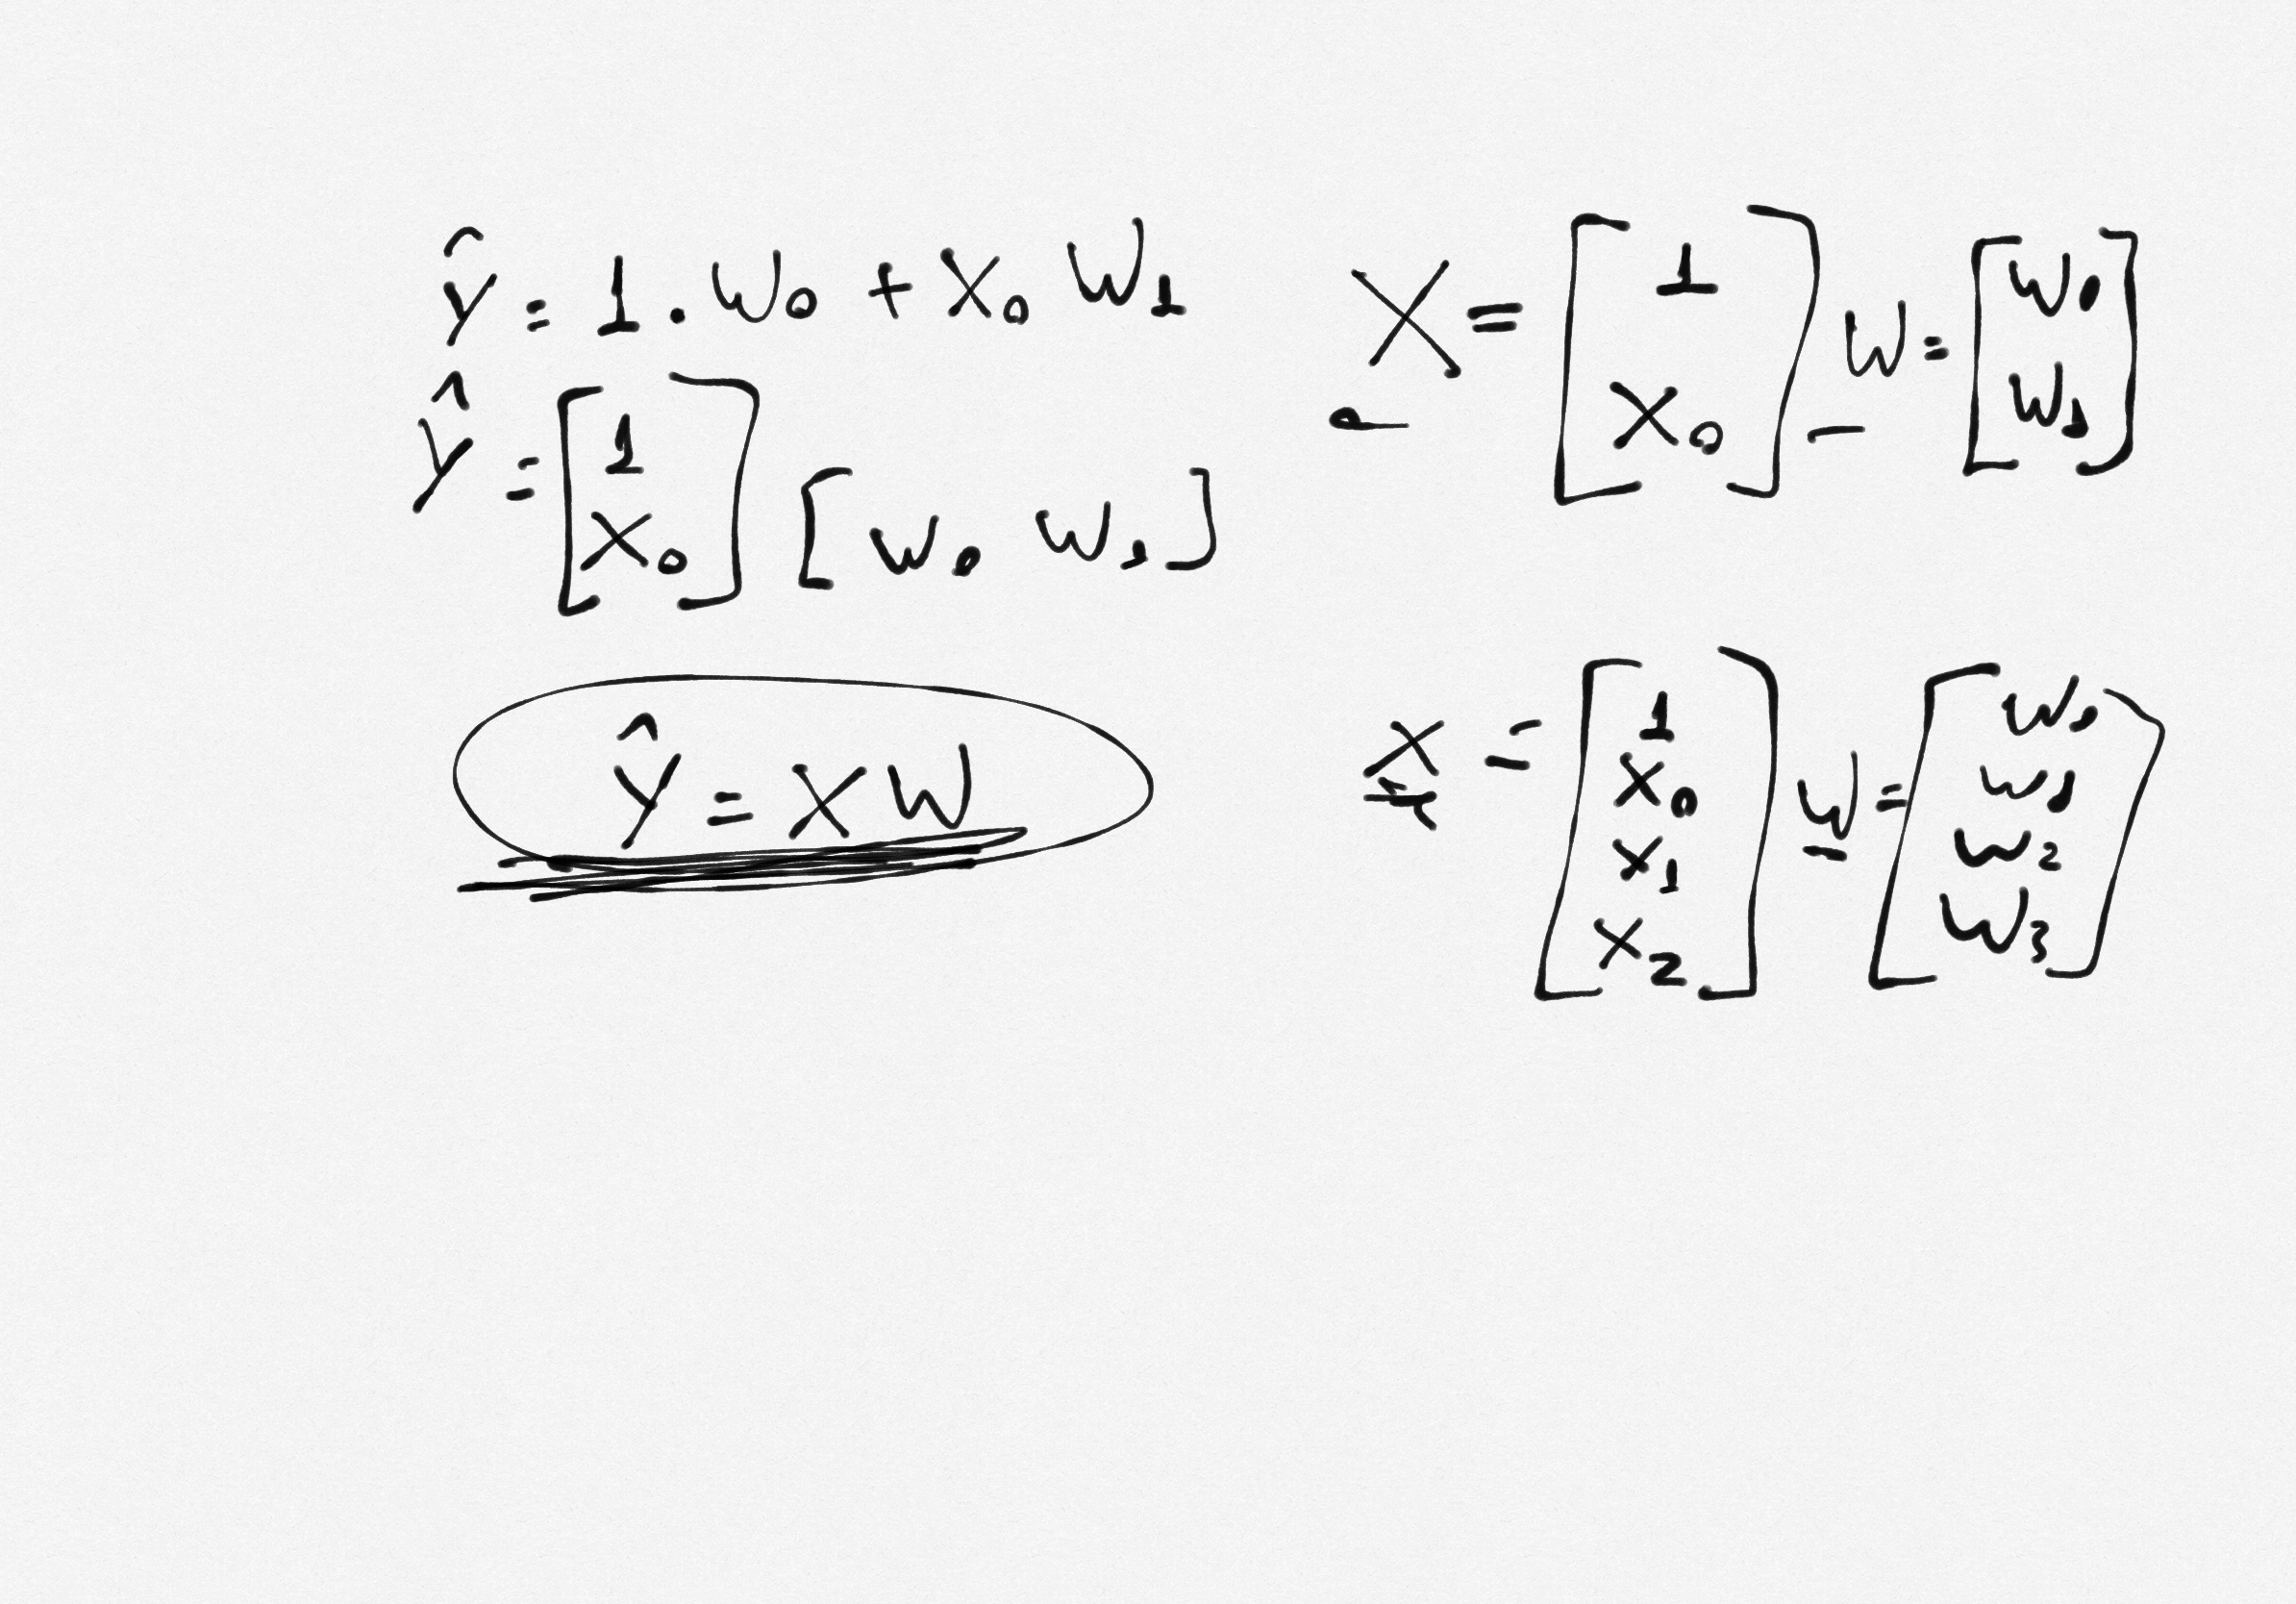 ŷ = 1 . w₀ + x₀ w₁
ŷ = [1 x₀] [w₀ w₁]
ŷ = x w
X = [1 x₀] w = [w₀ w₁]
x = [1 x₀ x₁ x₂] w = [w₀ w₁ w₂ w₃]